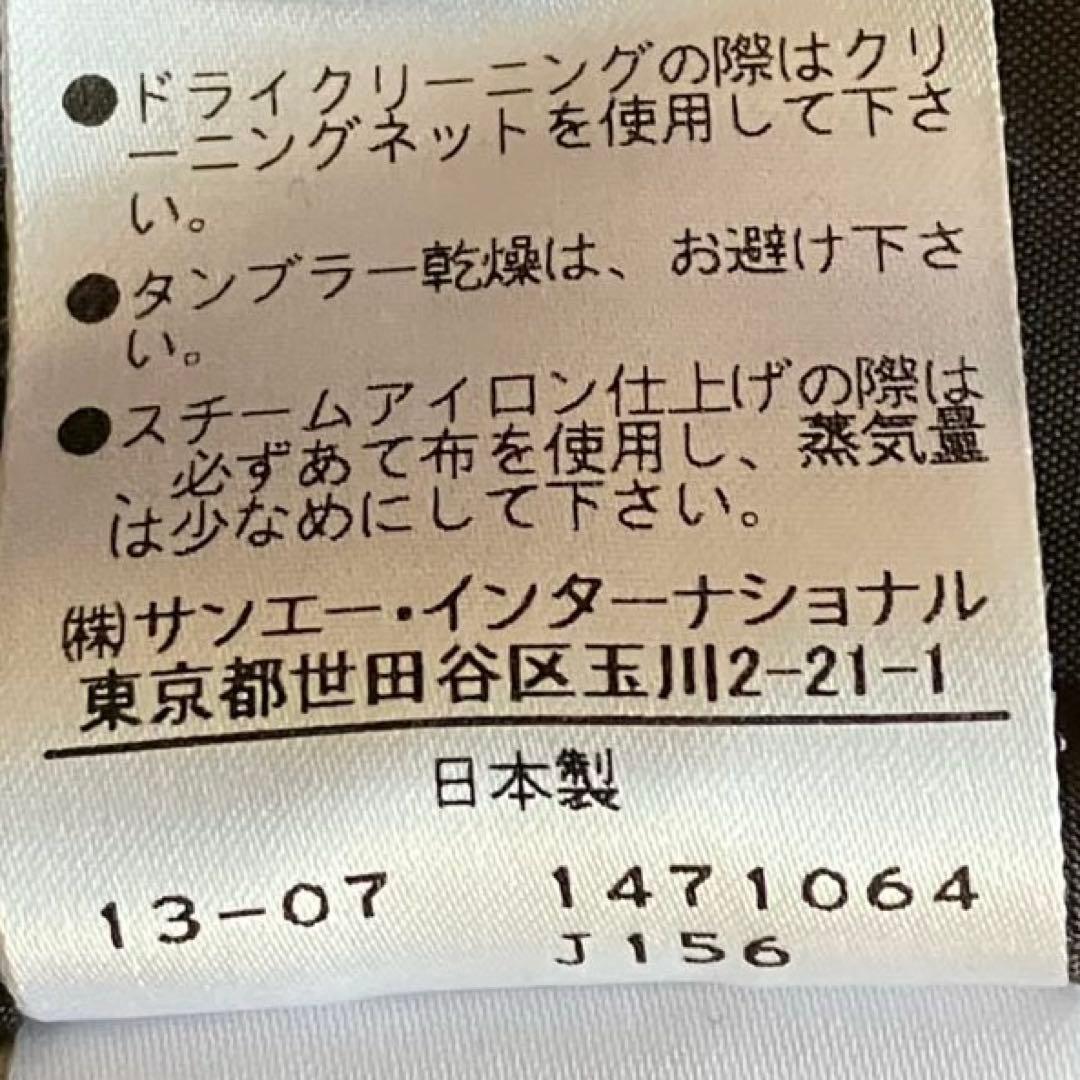 ●ドライクリーニングの際はクリ
ーニングネットを使用して下さ
い。
●タンブラー乾燥は、お避け下さ
い。
●スチームアイロン仕上げの際は
必ずあて布を使用し、蒸気量
は少なめにして下さい。
㈱サンエー・インターナショナル
東京都世田谷区玉川2-21-1
日本製
13-07 1471064
J156